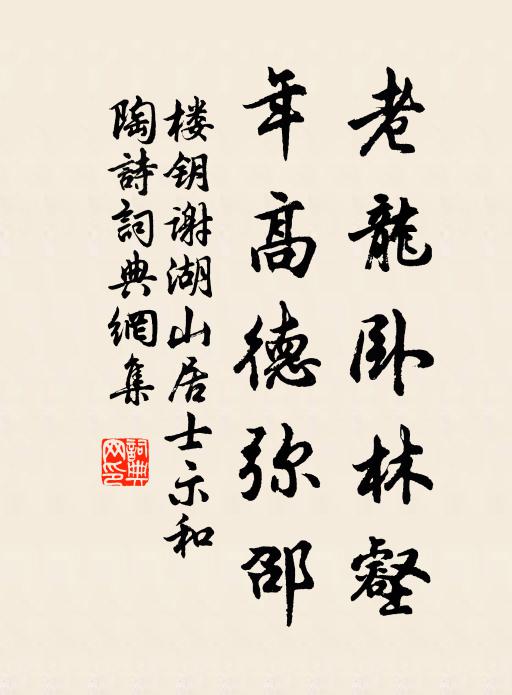 老龍卧林壑
年高德弥邵
楼钥谢湖山居士示和
陶詩詞典網集
詞典
网印